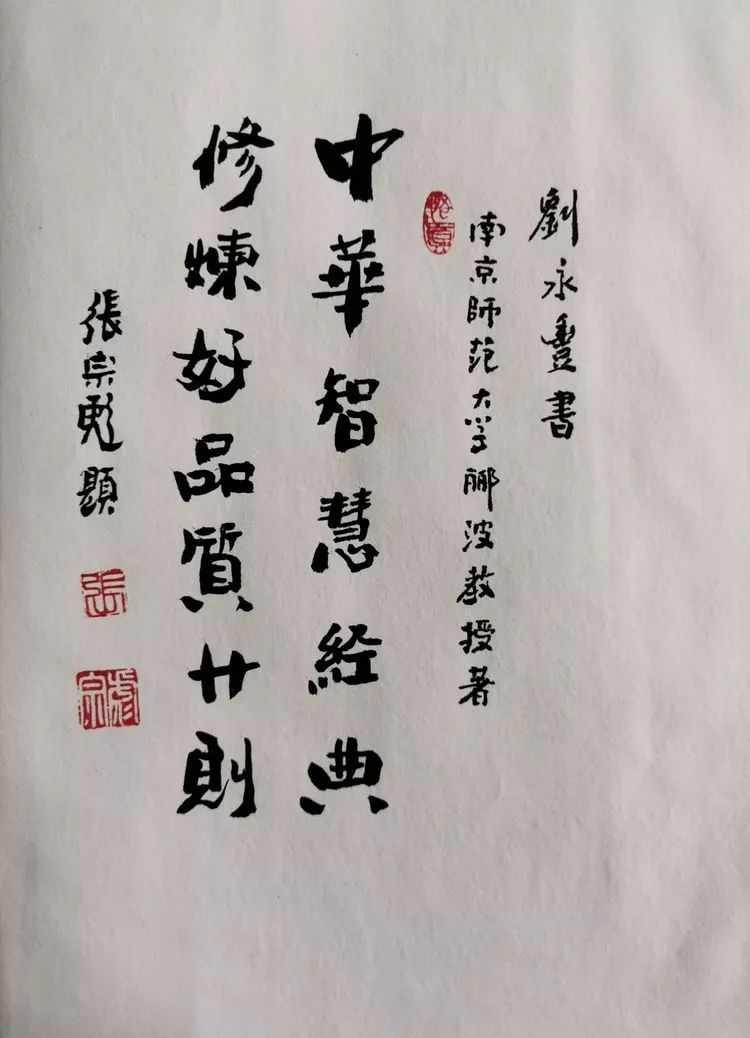 劉永豐書
南京師范大学酈波教授著
中華智慧經典
修煉好品質廿則
張宗彪題
張